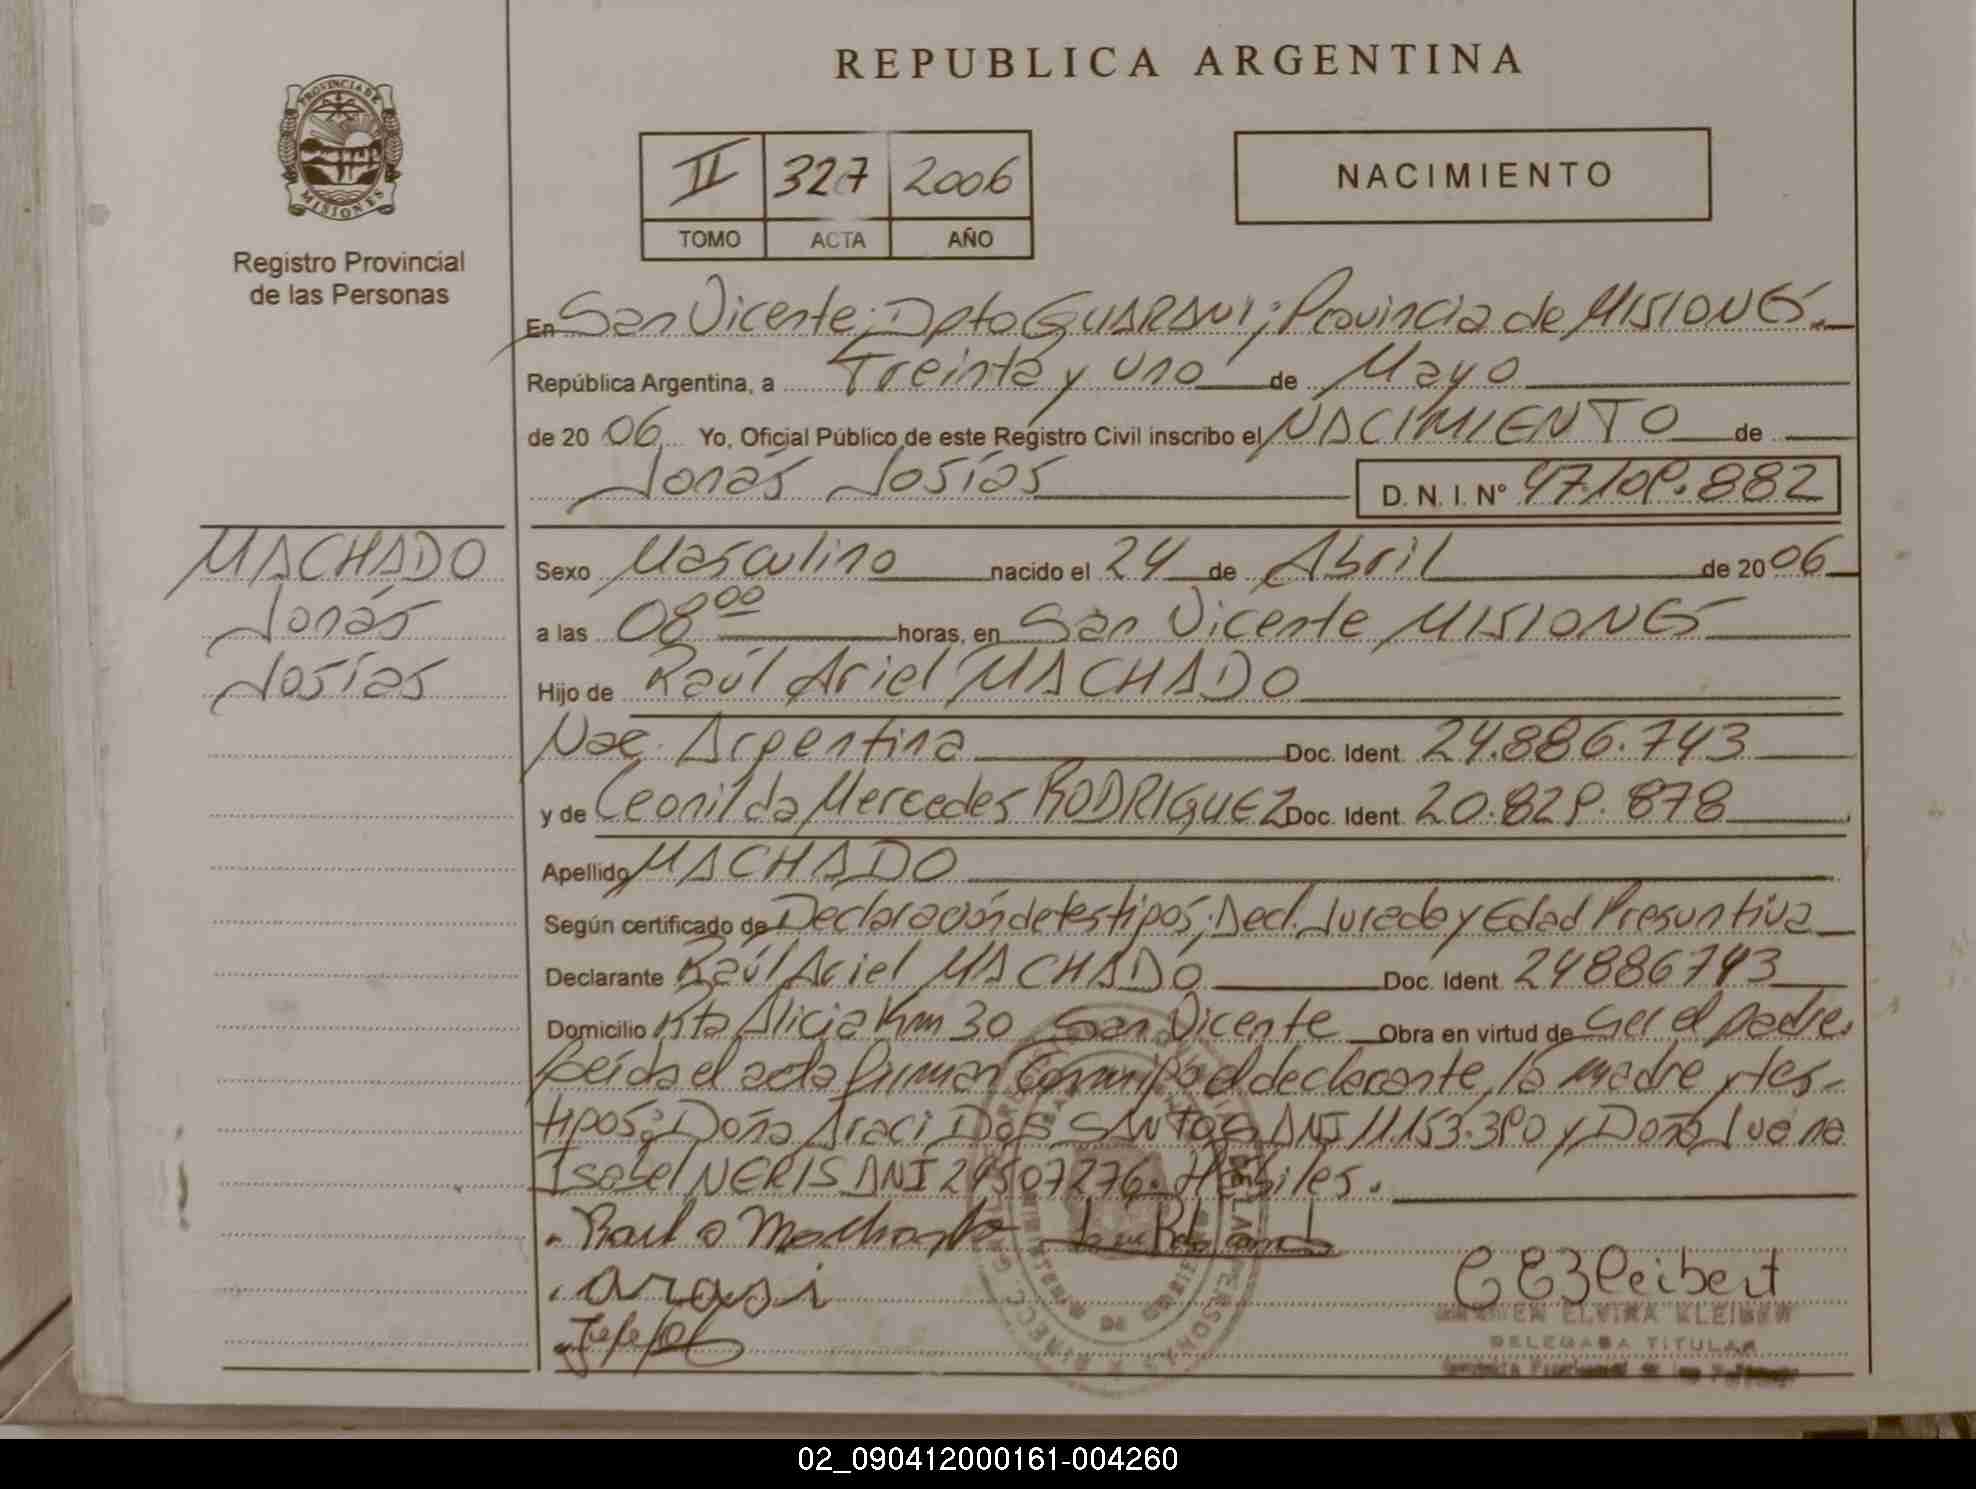 PROVINCIA DE
MISIONES
Registro Provincial
de las Personas
REPUBLICA ARGENTINA
II 327 2006
TOMO ACTA AÑO
NACIMIENTO
En San Vicente; Dpto GUARANI; Provincia de MISIONES.
República Argentina, a Treinta y uno de Mayo
de 20 06 Yo, Oficial Público de este Registro Civil inscribo el NACIMIENTO de
Jonás Josías D. N. I. Nº 47109.882
MACHADO
Jonás
Josías
Sexo Masculino nacido el 24 de Abril de 20 06
a las 08 00 horas, en San Vicente MISIONES
Hijo de Raúl Ariel MACHADO
Nac. Argentina Doc. Ident. 24.886.743
y de Leonilda Mercedes RODRIGUEZ Doc. Ident. 20.829.878
Apellido MACHADO
Según certificado de Declaración de testigos; Decl. Jurada y Edad Presuntiva
Declarante Raúl Ariel MACHADO Doc. Ident. 24886743
Domicilio Kta Alicia Km 30 San Vicente Obra en virtud de Ser el padre.
Leída el acta firman Conmigo el declarante, la madre y tes-
tigos: Doña Araci DOS SANTOS DNI 11.153.390 y Doña Juana
Isabel NERIS DNI 24507276. Hábiles.
Raul a Machado
arasi
CARMEN ELVIRA KLEIBERT
DELEGADA TITULAR
02_090412000161-004260